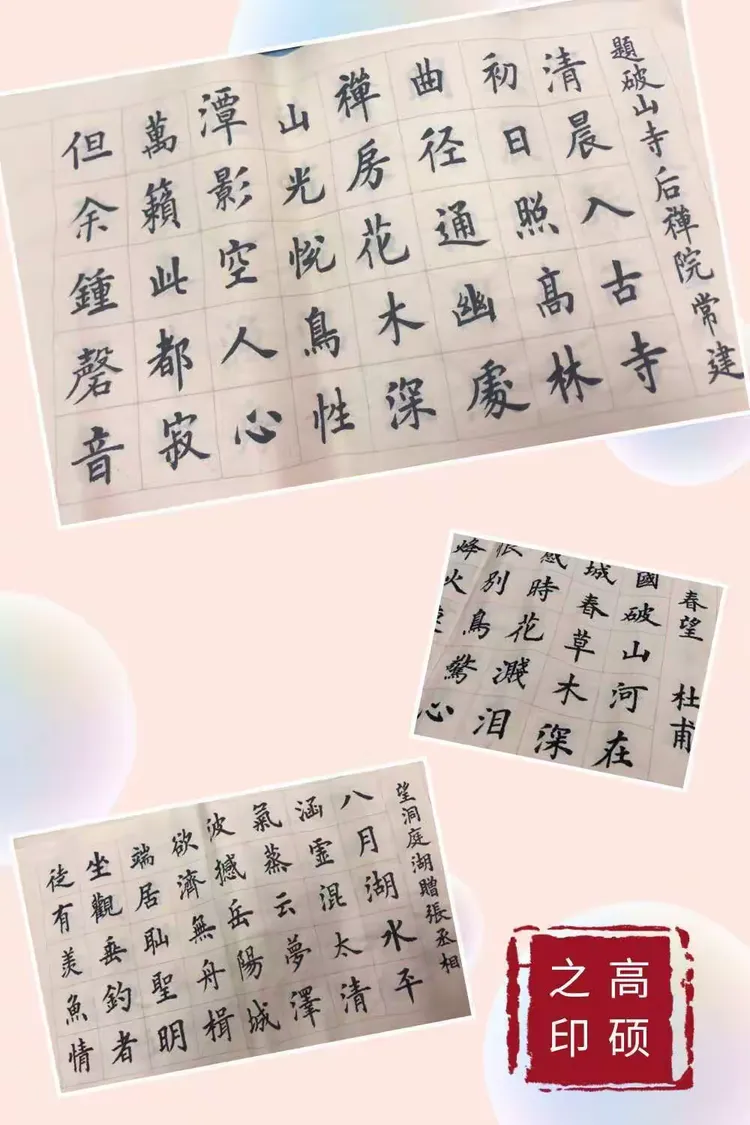 題破山寺后禪院常建
清晨入古寺
初日照高林
曲径通幽處
禪房花木深
山光悅鳥性
潭影空人心
萬籟此都寂
但余鍾磬音
春望 杜甫
國破山河在
城春草木深
感時花濺泪
恨別鳥驚心
烽火
望洞庭湖贈張丞相
八月湖水平
涵虚混太清
氣蒸云夢澤
波撼岳陽城
欲濟無舟楫
端居耻聖明
坐觀垂釣者
徒有羡魚情
高硕
之印